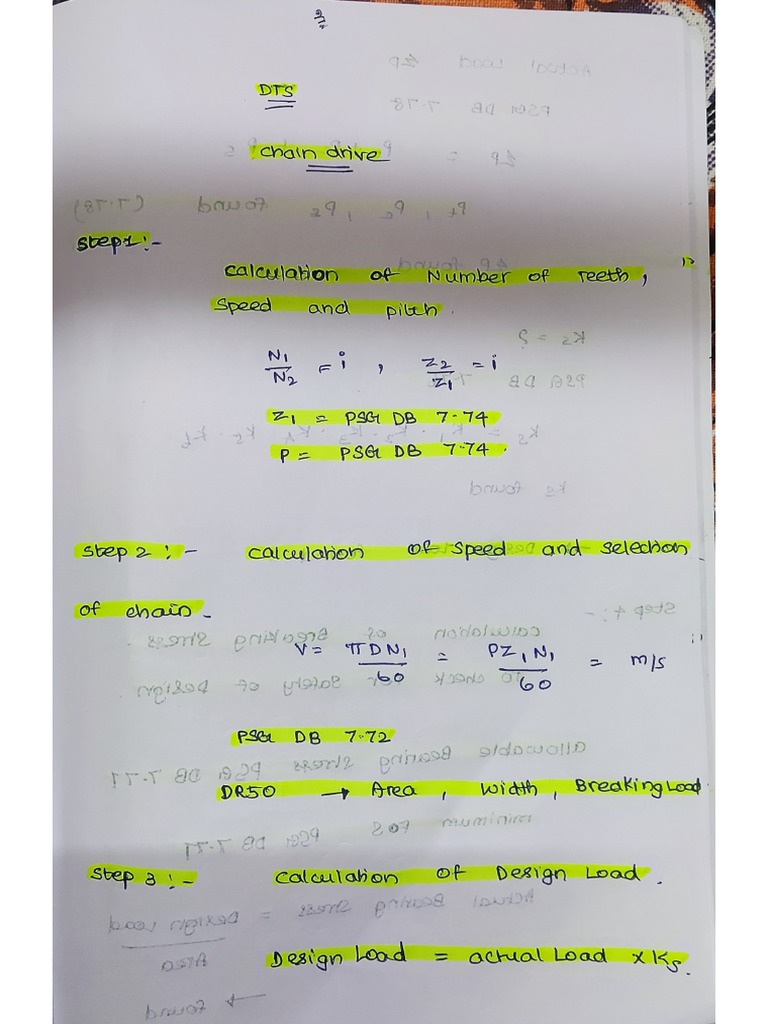 DTS
chain drive
Step1:-
calculation of Number of Teeth,
Speed and pitch.
N1/N2 = i , Z2/Z1 = i
Z1 = PSG DB 7.74
P = PSG DB 7.74.
Step 2 :- calculation of speed and selection
of chain.
V = πDN1/60 = PZ1N1/60 = m/s
PSG DB 7.72
DR50 → Area, width, Breaking Load
Step 3 :- calculation of Design Load.
Design Load = actual Load x Ks.